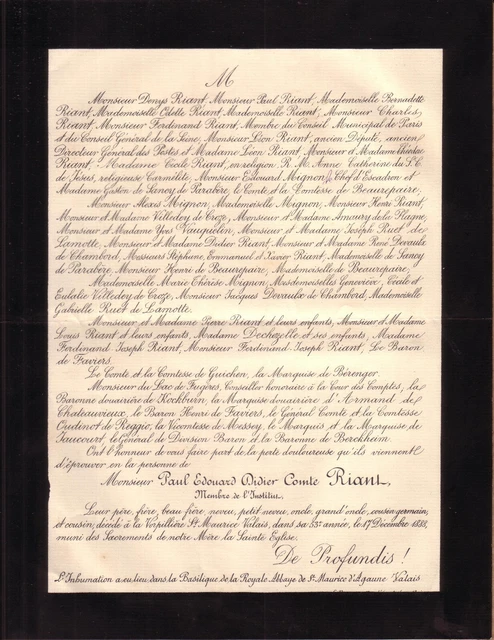 M
Monsieur Denys Riant, Monsieur Paul Riant, Mademoiselle Bernadette
Riant, Mademoiselle Odette Riant, Mademoiselle Riant, Monsieur Charles
Riant, Monsieur Ferdinand Riant, Membre du Conseil Municipal de Paris
et du Conseil Général de la Seine, Monsieur Léon Riant, ancien Député, ancien
Directeur Général des Postes et Madame Léon Riant, Monsieur et Madame Théodore
Riant, Madame Cécile Riant, en religion R. M. Anne Catherine du St. C.
de Jésus, religieuse Carmélite, Monsieur Edouard Mignon, Chef d'Escadron et
Madame Gaston de Sancy de Parabère, le Comte et la Comtesse de Beaurepaire,
Monsieur Alexis Mignon, Mademoiselle Mignon, Monsieur Henri Riant,
Monsieur et Madame Villedey de Croze, Monsieur et Madame Amaury de la Plagne,
Monsieur et Madame Yves Vauquelin, Monsieur et Madame Joseph Ruet de
Lamotte, Monsieur et Madame Didier Riant, Monsieur et Madame René Devaulx
de Chambord, Messieurs Stéphane, Emmanuel et Xavier Riant, Mademoiselle de Sancy
de Parabère, Monsieur Henri de Beaurepaire, Mademoiselle de Beaurepaire,
Mademoiselle Marie Thérèse Mignon, Mesdemoiselles Geneviève, Cécile et
Eulalie Villedey de Croze, Monsieur Jacques Devaulx de Chambord, Mademoiselle
Gabrielle Ruet de Lamotte,
Monsieur et Madame Pierre Riant et leurs enfants, Monsieur et Madame
Louis Riant et leurs enfants, Madame Dechezelle et ses enfants, Madame
Ferdinand Joseph Riant, Monsieur Ferdinand Joseph Riant, Le Baron
de Faviers,
Le Comte et la Comtesse de Guichen, la Marquise de Bérenger,
Monsieur du Lac de Fugères, Conseiller honoraire à la Cour des Comptes, la
Baronne douairière de Kockburn, la Marquise douairière d'Armand de
Chateauvieux, le Baron Henri de Faviers, le Général Comte et la Comtesse
Oudinot de Reggio, la Vicomtesse de Messey, le Marquis et la Marquise de
Jaucourt, le Général de Division Baron et la Baronne de Berckheim
Ont l'honneur de vous faire part de la perte douloureuse qu'ils viennent
d'éprouver en la personne de
Monsieur Paul Edouard Didier Comte Riant,
Membre de l'Institut,
Leur père, frère, beau frère, neveu, petit neveu, oncle, grand'oncle, cousin germain,
et cousin, décédé à la Vépillière St Maurice Valais, dans sa 53e année, le 17 Décembre 1888,
muni des Sacrements de notre Mère la Sainte Eglise.
De Profundis !
L'Inhumation a eu lieu dans la Basilique de la Royale Abbaye de St Maurice d'Agaune Valais